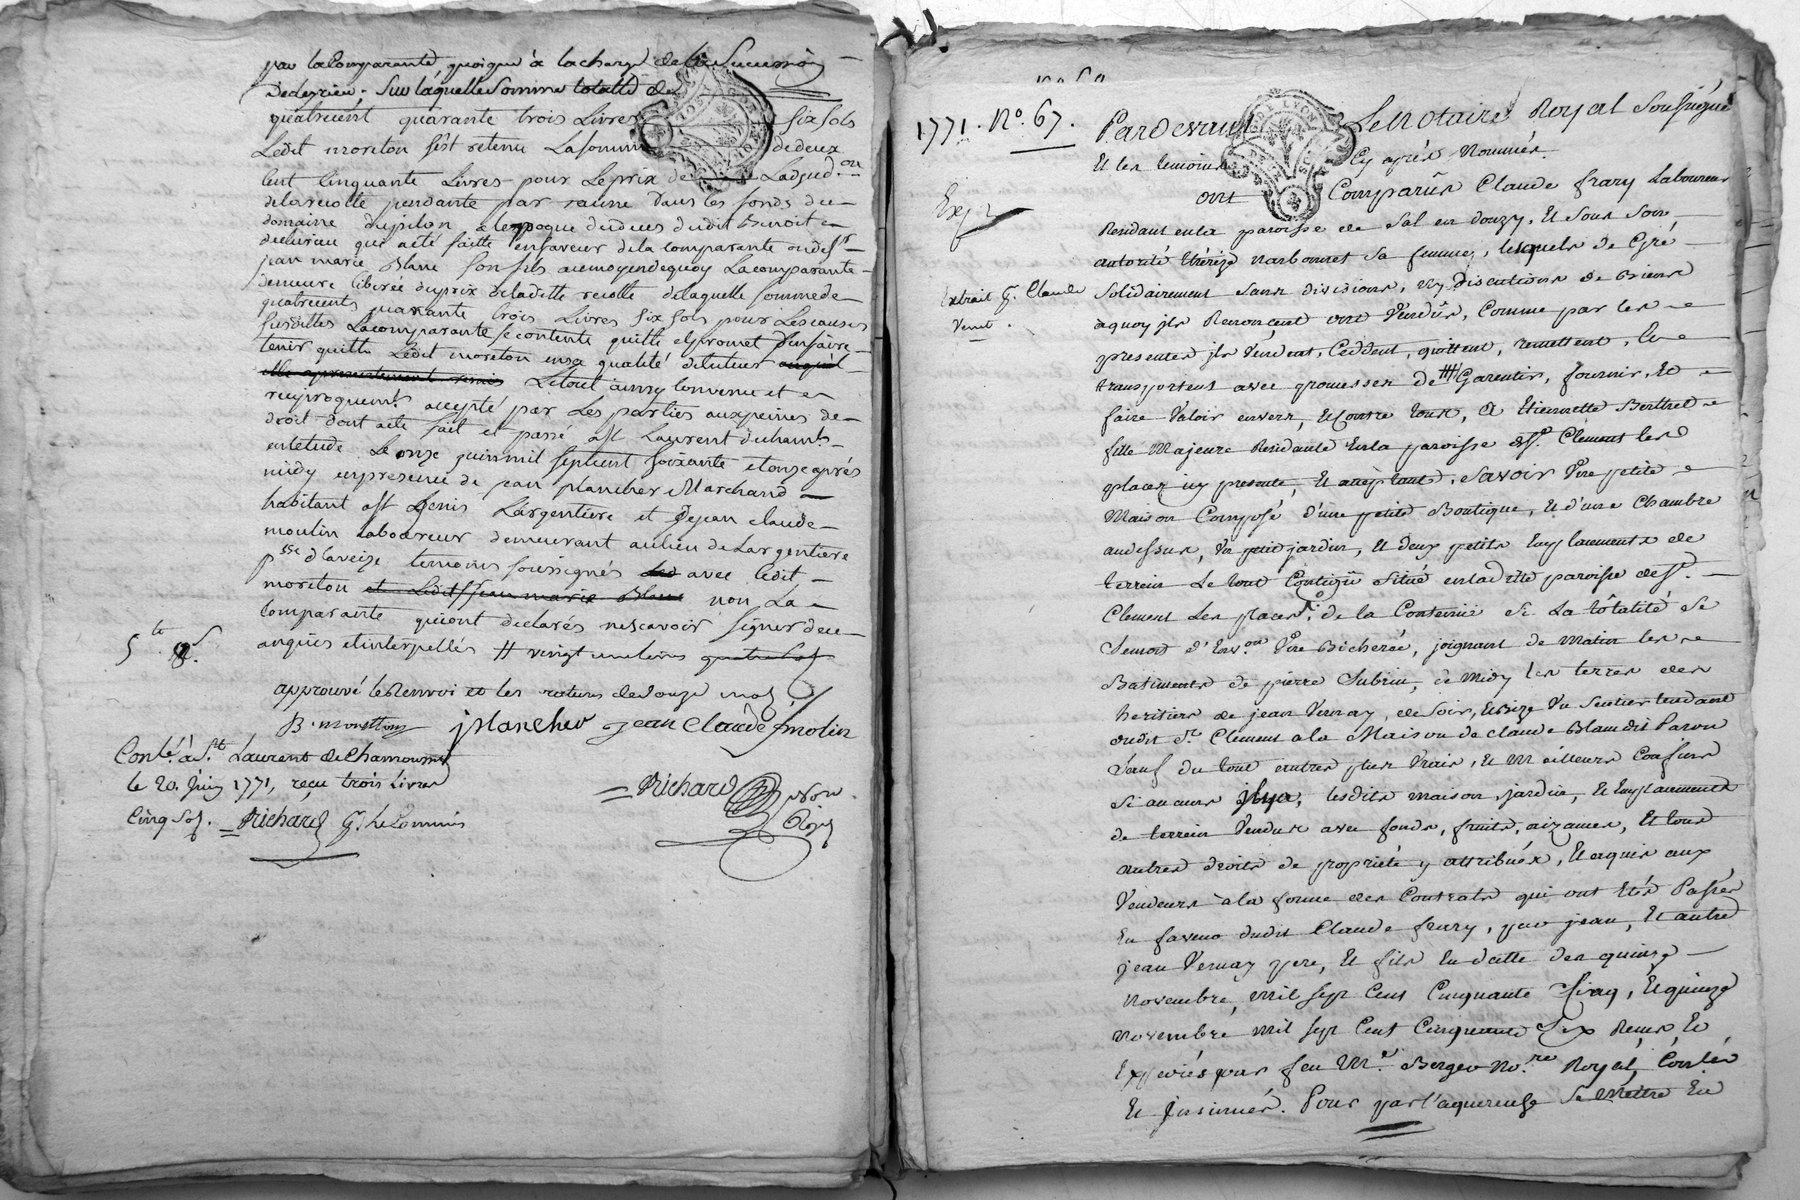 par la Comparante quoique à la charge de la Succession
quatrecent quarante trois Livres six sols
Ledit moreton s'est retenu La somme de deux
Cent Cinquante Livres pour Le prix de Ladjud.on
de la recolte pendante par racine dans les fonds du
domaine du pilon a l'epoque du deces dudit Benoit
qui a eté faitte en faveur de la comparante
jean marie Blanc son fils au moyen de quoy La comparante
demeure liberée du prix de laditte recolte de laquelle somme de
quatrecents quarante trois Livres six sols pour Les causes
susdittes La comparante se contente quitte et promet
tenir quitte Ledit moreton en sa qualité de tuteur
Le tout ainsy convenu et
reciproquem.t accepté par Les parties aux peines de
droit dont acte fait et passé a S.t Laurent de chamous.t
en etude Le onze juin mil sept cent soixante et onze après
midy en presence de jean plancher Marchand
habitant a S.t Genis Largentiere et de jean claude
moulin Laboureur demeurant au lieu de Largentiere
p.sse d'aveize temoins soussignés avec Ledit
moreton et Ledit S. jean marie Blanc non La
Comparante qui ont declarés ne scavoir signer de ce
enquis et interpellés # vingt un livres
approuvé le Renvoi et les ratures de douze mots
jplancher jean Claude molin
Conlé. à St. Laurent de Chamousset
le 20. Juin 1771, reçu trois Livres
Cinq Sols. Richard
Richard
1771. No. 67. Pardevant Le Notaire Royal Soussigné
Et les temoins Cy après Nommés.
ont Comparûs Claude frary Laboureur
Residant en la paroisse de Sal en donzy, Et sous son
autorité thérèze narbonnet sa femme, lesquels de Gré
Extrait G. Claude Solidairement sans division, ny discution de Biens
Vente. à quoy ils Renonçent ont Vendûs, Comme par les
presentes ils Vendent, Ceddent, quittent, remettent, Et
transportent avec promesses de Garentir, fournir, Et
faire Valoir envers, Et Contre tous, A Etiennette Berthet
fille Majeure Residante En la paroisse de St. Clément les
places icy presente, Et acceptante, Savoir Une petite
Maison Composé d'une petite Boutique, Et d'une Chambre
au dessus, Un petit jardin, Et deux petits Emplacements de
terrein Le tout Contigû situé en la dite paroisse de St.
Clement Les places, de la Contenüe de La tôtalité de
Semont d'Env.on Une Bicherée, joignant de matin les
Batiments de pierre Subrin, de Midy les terres des
heritiers de jean Vernay, de Soir, Et Bize Un Sentier tendant
dudit St. Clément a la Maison de claude Blanc dit Paron
Sauf du tout autres plus Vrais, Et Meilleurs Confins
Si aucuns il y a, lesdits maison, jardin, Et Emplacements
de terrein Vendus avec fonds, fruits, aizances, Et tous
autres droits de proprieté y attribués, Et aquis aux
Vendeurs à la forme des Contrats qui ont Etés Passés
En faveur dudit Claude frary, par jean, Et autre
jean Vernay pere, Et fils En datte des quinze
Novembre, mil sept Cent Cinquante Cinq, Et quinze
Novembre mil sept Cent Cinquante Six Reçus Et
Expediés par feu Me. Berger No.re Royal, Conlés
Et Insinués. Pour par l'aquereuse Se mettre En